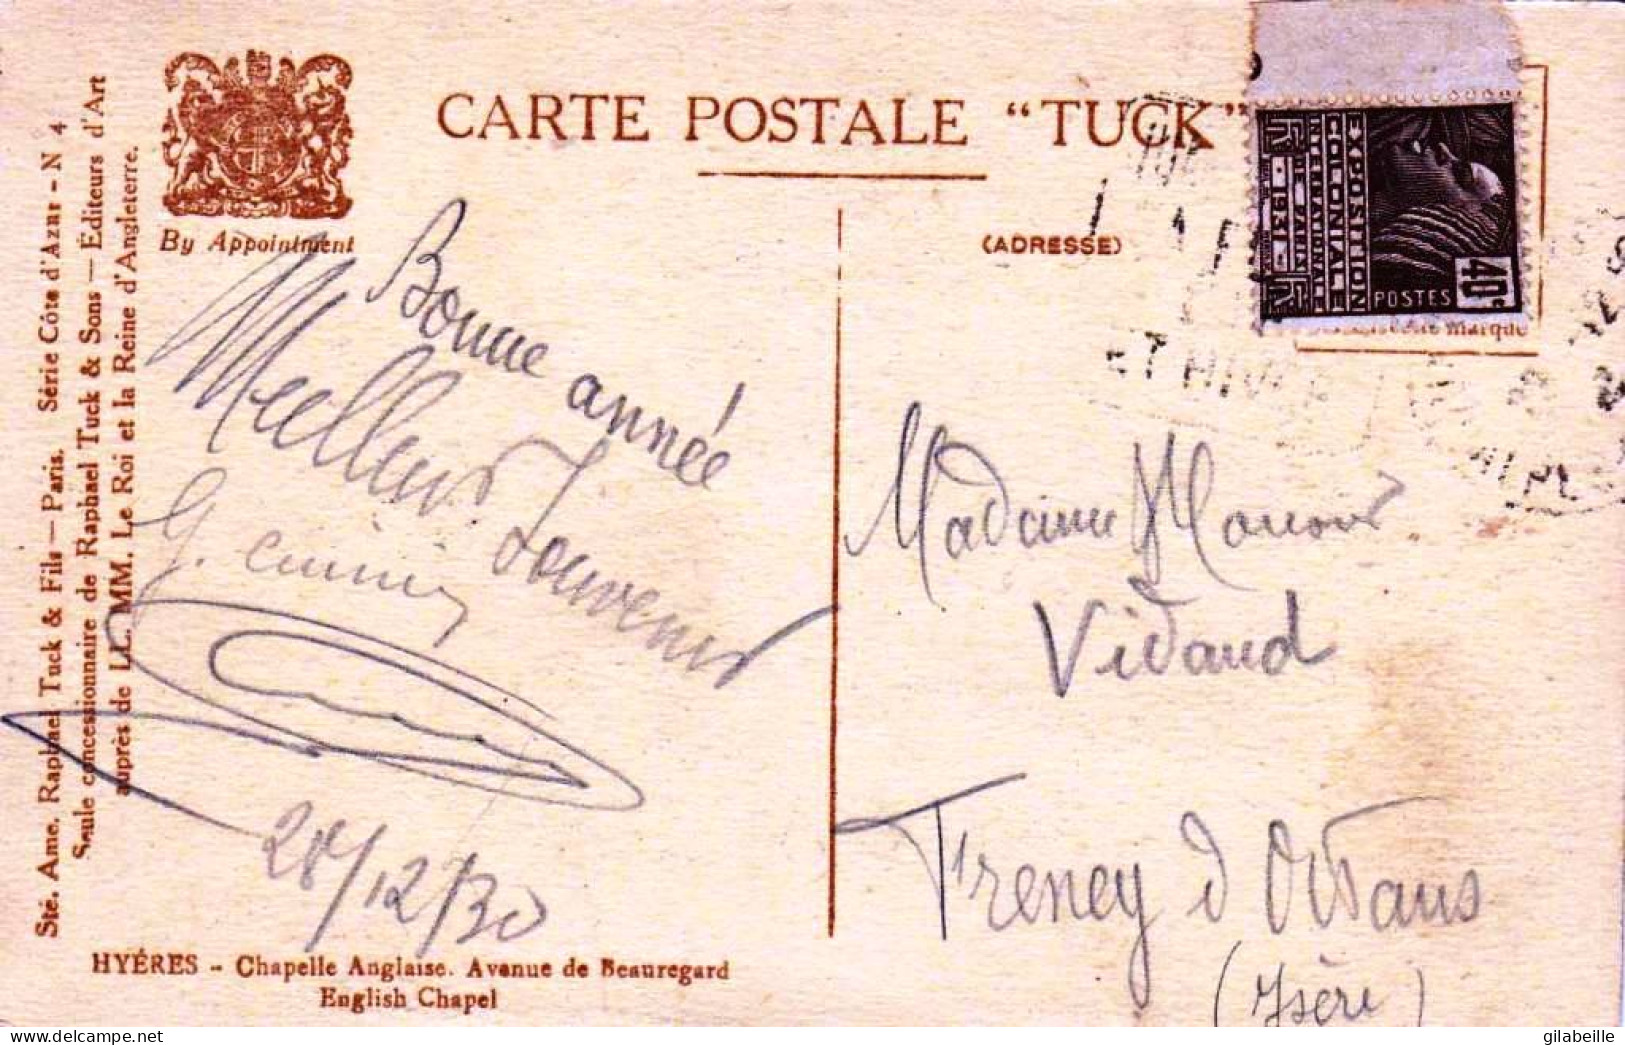 CARTE POSTALE "TUCK"
By Appointment
(ADRESSE)
Sté. Ame. Raphael Tuck & Fils — Paris. Série Côte d'Azur - N 4
Seule concessionnaire de Raphael Tuck & Sons — Editeurs d'Art
auprès de LL. MM. Le Roi et la Reine d'Angleterre.
EXPOSITION
COLONIALE
INTERNATIONALE
DE PARIS
1931
POSTES
40c
marque
ET HIVER
Bonne année
Meilleurs Souvenirs
G.
28/12/30
Madame
Vidaud
Freney d'Oisans
(Isère)
HYÉRES - Chapelle Anglaise. Avenue de Beauregard
English Chapel
gilabeille